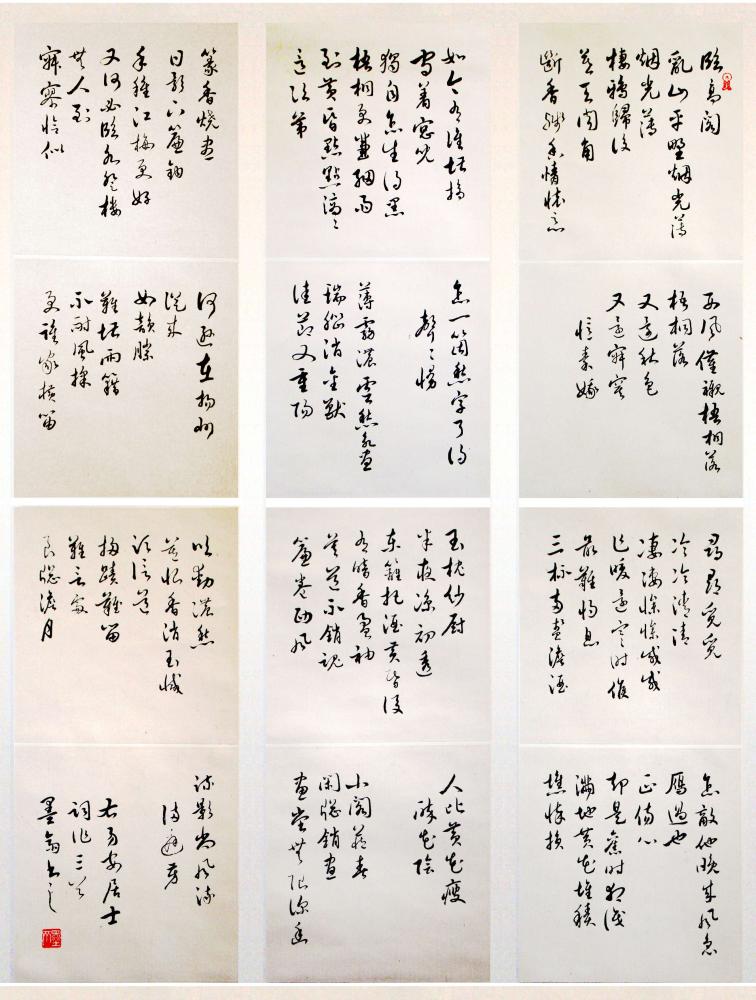 臨高閣
亂山平野煙光薄
煙光薄
棲鴉歸後
暮天聞角
斷香殘香情懷惡
西風催襯梧桐落
梧桐落
又還秋色
又還寂寞
憶秦娥
尋尋覓覓
冷冷清清
凄凄慘慘戚戚
乍暖還寒時候
最難將息
三杯兩盞淡酒
怎敵他晚來風急
雁過也
正傷心
却是舊時相識
滿地黃花堆積
憔悴損
如今有誰堪摘
守著窗兒
獨自怎生得黑
梧桐更兼細雨
到黃昏點點滴滴
這次第
怎一箇愁字了得
聲聲慢
薄霧濃雲愁永晝
瑞腦消金獸
佳節又重陽
玉枕紗厨
半夜涼初透
東籬把酒黃昏後
有暗香盈袖
莫道不銷魂
簾卷西風
人比黃花瘦
醉花陰
小閣藏春
閑窗銷晝
畫堂無限深幽
篆香燒盡
日影下簾鉤
手種江梅更好
又何必臨水登樓
無人到
寂寥恰似
何遜在揚州
從來
如韻勝
難堪雨藉
不耐風揉
更誰家橫笛
吹動濃愁
莫恨香消玉減
須信道
掃蹟難留
難言處
良窗淡月
疏影尚風流
滿庭芳
右易安居士
詞作三首
書之